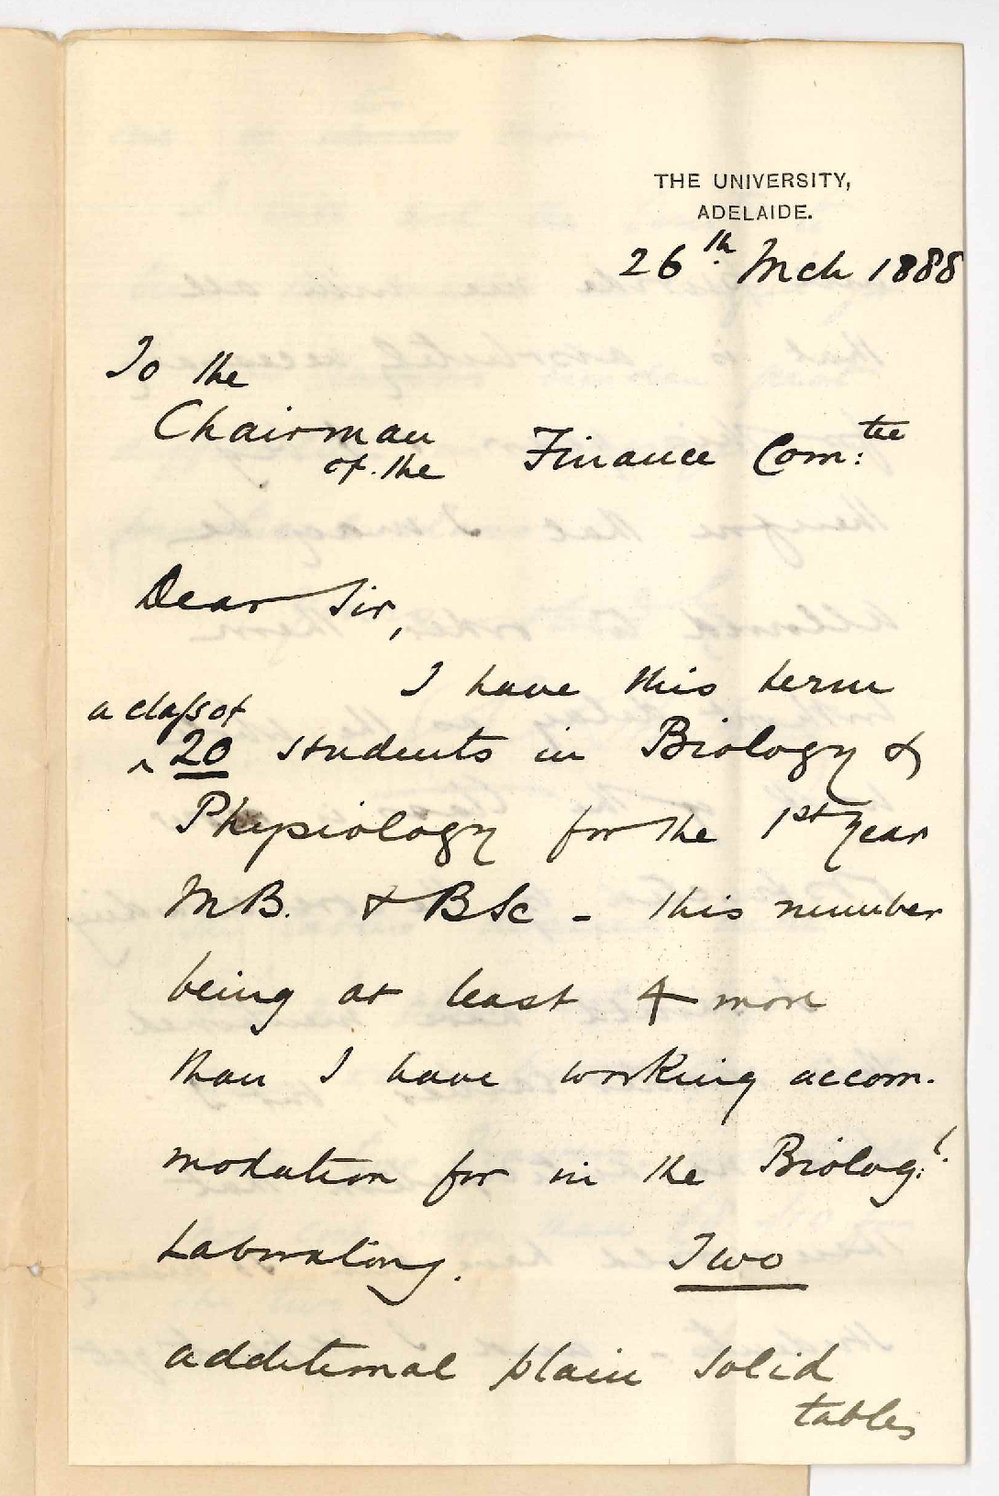 THE UNIVERSITY,
ADELAIDE.
26th. Mch 1888
To the
Chairman
of the Finance Com:tee
Dear Sir,
I have this term
a class of
^ 20 students in Biology &
Physiology for the 1st Year
MB. & BSc - this number
being at least 4 more
than I have working accom-
modation for in the Biolog:l.
Laboratory. Two
additional plain solid
tables